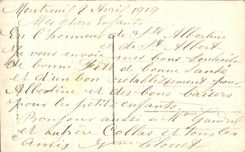 Montreuil 2 Avril 1919
Mes chers Enfants
En l'honneur de Ste Albertine
et de St Albert
Je vous envoie mes bons souhaits
de bonne Fête de bonne santé
et d'un bon rétablissement pour
Albertine et des bons baisers
pour les petits enfants.
Bonjour aussi à Mme
et Collas et tous les
Amis